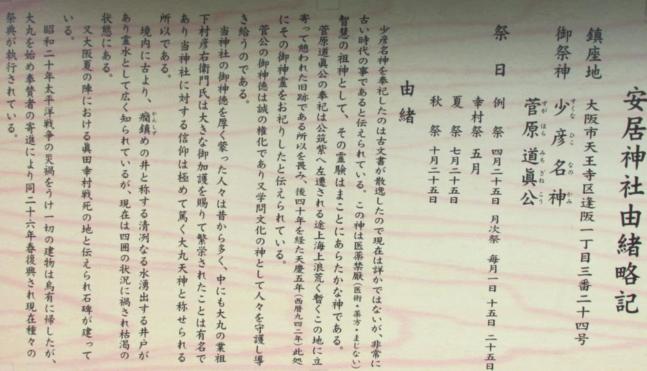 安居神社由緒略記
鎮座地　大阪市天王寺区逢阪一丁目三番二十四号
御祭神　少彦名神
すくな ひこ なの かみ
菅原道眞公
すが はら みち ざね こう
祭日　例祭　四月二十五日　月次祭　毎月一日　十五日　二十五日
幸村祭　五月
夏祭　七月二十五日
秋祭　十月二十五日
由緒
少彦名神を奉祀したのは古文書が散逸したので現在は詳かではないが、非常に
古い時代の事であると伝えられている。この神は医薬禁厭(医術・薬方・まじない)
智慧の祖神として、その霊験はまことにあらたかな神である。
菅原道眞公の奉祀は公筑紫へ左遷される途上海上浪荒く暫くこの地に立
寄って憩われた旧跡である所以を畏み、後四十年を経た天慶五年(西暦九四二年)此処
にその御神霊をお祀りしたと伝えられている。
菅公の御神徳は誠の権化であり又学問文化の神として人々を守護し導
き給うのである。
当神社の御神徳を厚く蒙った人々は昔から多く、中にも大丸の業祖
下村彦右衛門氏は大きな御加護を賜りて繁栄されたことは有名で
あり当神社に対する信仰は極めて篤く大丸天神と称せられる
所以である。
境内に古より、癇鎮めの井と称する清冽なる水湧出する井戸が
かんしず
あり霊水として広く知られているが、現在は四囲の状況に禍され枯渇の
状態にある。
又大阪夏の陣における眞田幸村戦死の地と伝えられ石碑が建って
いる。
昭和二十年太平洋戦争の災禍をうけ一切の建物は烏有に帰したが、
大丸を始め奉賛者の寄進により同二十六年春復興され現在種々の
祭典が執行されている。